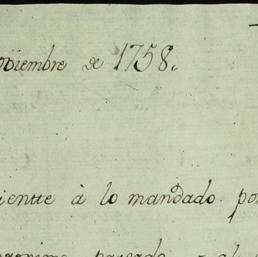 oviembre de 1758.
iente à lo mandado por